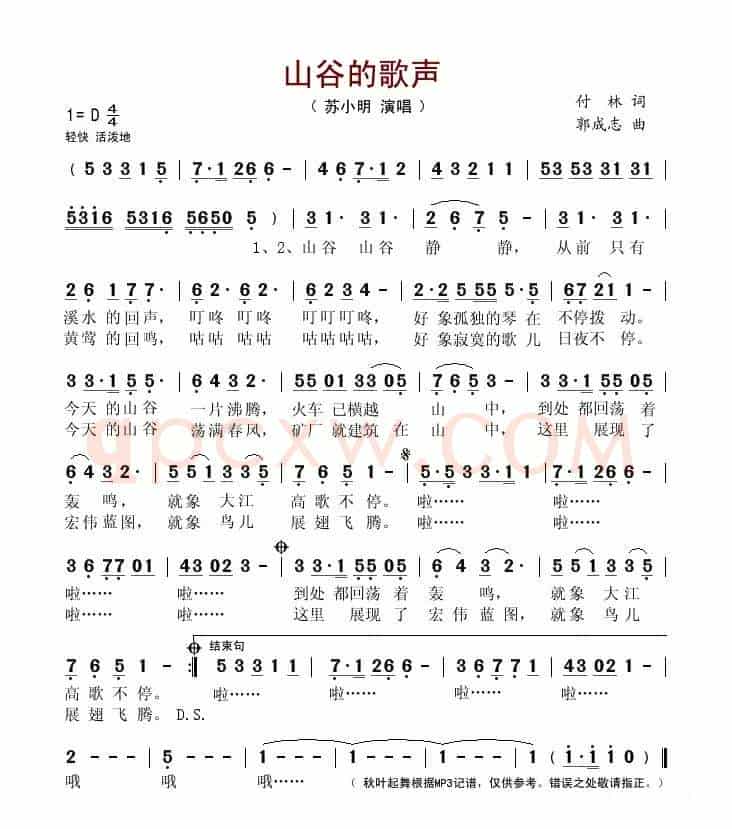 山谷的歌声
（ 苏小明 演唱 ）
1= D 4/4
付 林 词
轻快 活泼地
郭成志 曲
( 5 3 3 1 5 | 7· 1 2 6 6 - | 4 6 7· 1 2 | 4 3 2 1 1 | 53 53 31 31 |
5316 5316 5650 5 ) | 3 1 · 3 1 · | 2 6 7 5 | 3 1 · 3 1 · |
1、2、山谷 山谷 静 静， 从前 只有
2 6 1 7 7 · | 6 2 · 6 2 · | 6 2 6 2 · | 2·2 55 5·5 | 67 21 1 |
溪水 的回声， 叮咚 叮咚 叮叮叮咚， 好 象孤独的琴 在 不停拨 动。
黄莺 的回鸣， 咕咕咕咕 咕咕咕咕， 好 象寂寞的歌 儿 日夜不 停。
3 3·1 5 5· | 6 4 3 2 · | 5 5 01 33 05 | 7 6 5 - | 3 3·1 55 05 |
今天 的山谷 一片沸腾， 火车 已横越 山 中， 到处 都回荡 着
今天 的山谷 荡满春风， 矿厂 就建筑 在 山 中， 这里 展现 了
6 4 3 2 · | 5 5 1 3 3 5 | 7 6 5 - | 5·5 3 3·1 1 | 7·1 2 6 6 - |
轰 鸣， 就象 大江 高歌不停。 啦…… 啦……
宏伟蓝图， 就象 鸟儿 展翅飞腾。 啦…… 啦……
3 6 77 01 | 43 02 3 - | 3 3·1 55 05 | 6 4 3 2 · | 5 5 1 3 3 5 |
啦…… 啦…… 到处 都回荡 着 轰 鸣， 就象 大江
啦…… 啦…… 这里 展现 了 宏伟 蓝图， 就象 鸟儿
结束句
7 6 5 1 - :| 5 3 3 1 1 | 7·1 2 6 6 - | 3 6 7 7 1 | 43 02 1 - |
高 歌 不 停。 啦…… 啦…… 啦…… 啦……
展 翅 飞 腾。 D.S.
2 - - - | 5 - - - | 1 - - - | 1 - - - | 1 - - - | 1 ( 1 1 0 ) ‖
哦 哦 哦…… （ 秋叶起舞根据MP3记谱，仅供参考。错误之处敬请指正。）